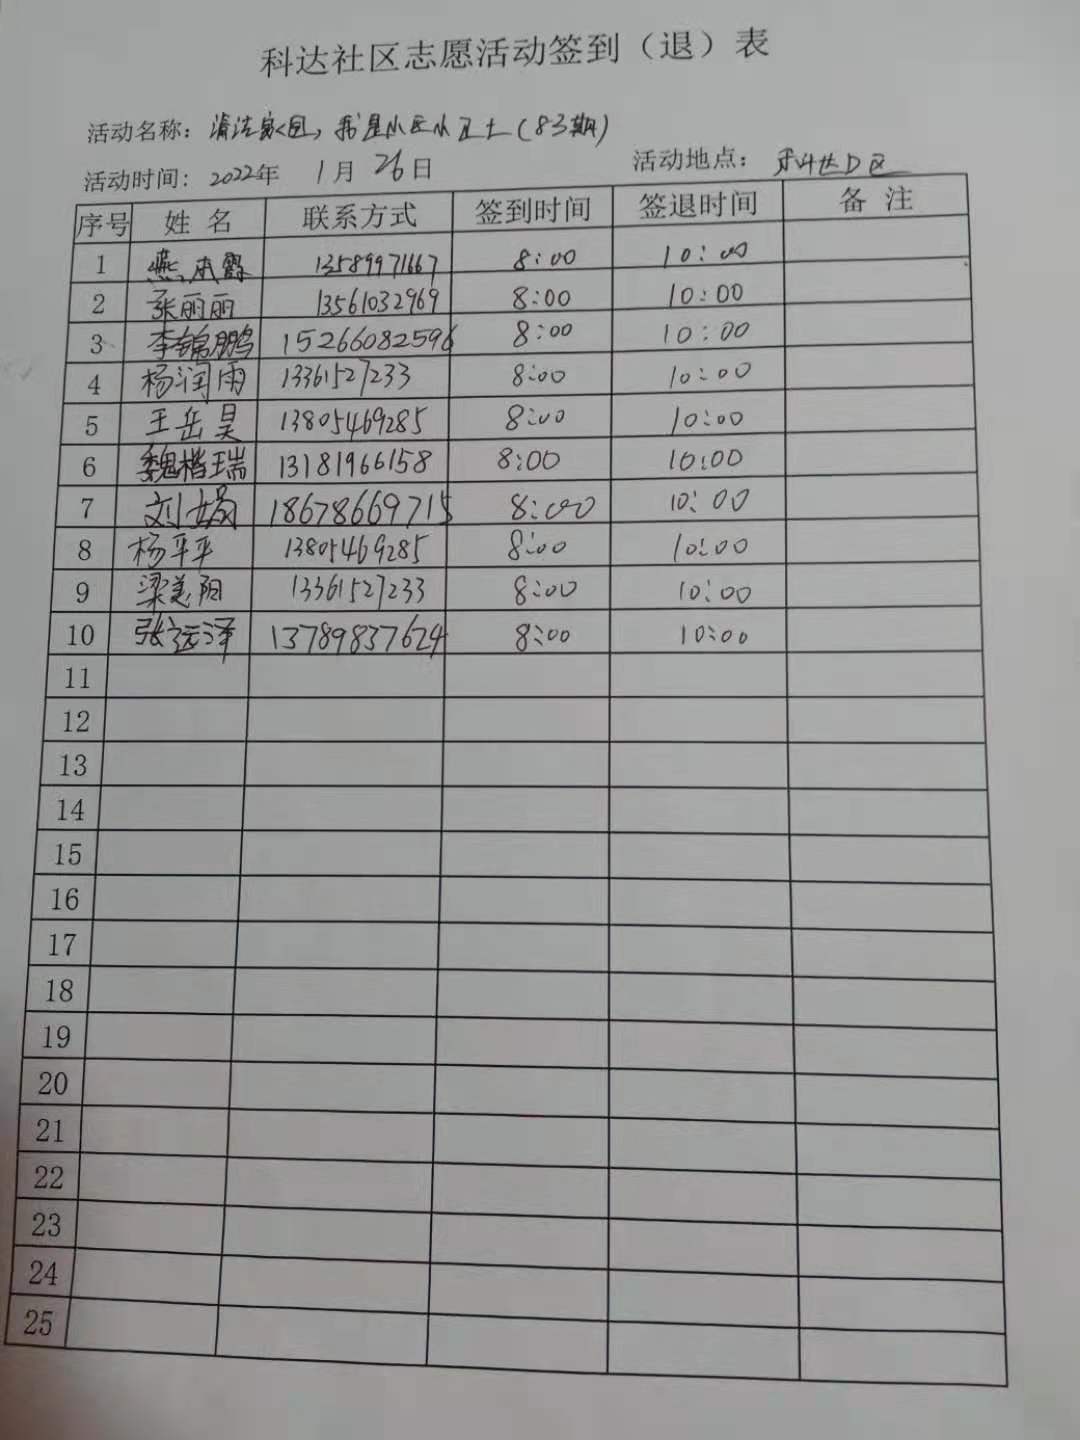 科达社区志愿活动签到（退）表
活动名称：清洁家园，我是小区小卫士（83期）
活动时间：2022年 1月 26日 活动地点：科达D区
序号 姓名 联系方式 签到时间 签退时间 备注
1 燕 13589971667 8:00 10:00
2 张丽丽 13561032969 8:00 10:00
3 李锦鹏 15266082596 8:00 10:00
4 杨润雨 13361527233 8:00 10:00
5 王岳昊 13805469285 8:00 10:00
6 魏楷瑞 13181966158 8:00 10:00
7 刘娟 18678669715 8:00 10:00
8 杨平平 13805469285 8:00 10:00
9 梁美阳 13361527233 8:00 10:00
10 张运泽 13789837624 8:00 10:00
11
12
13
14
15
16
17
18
19
20
21
22
23
24
25